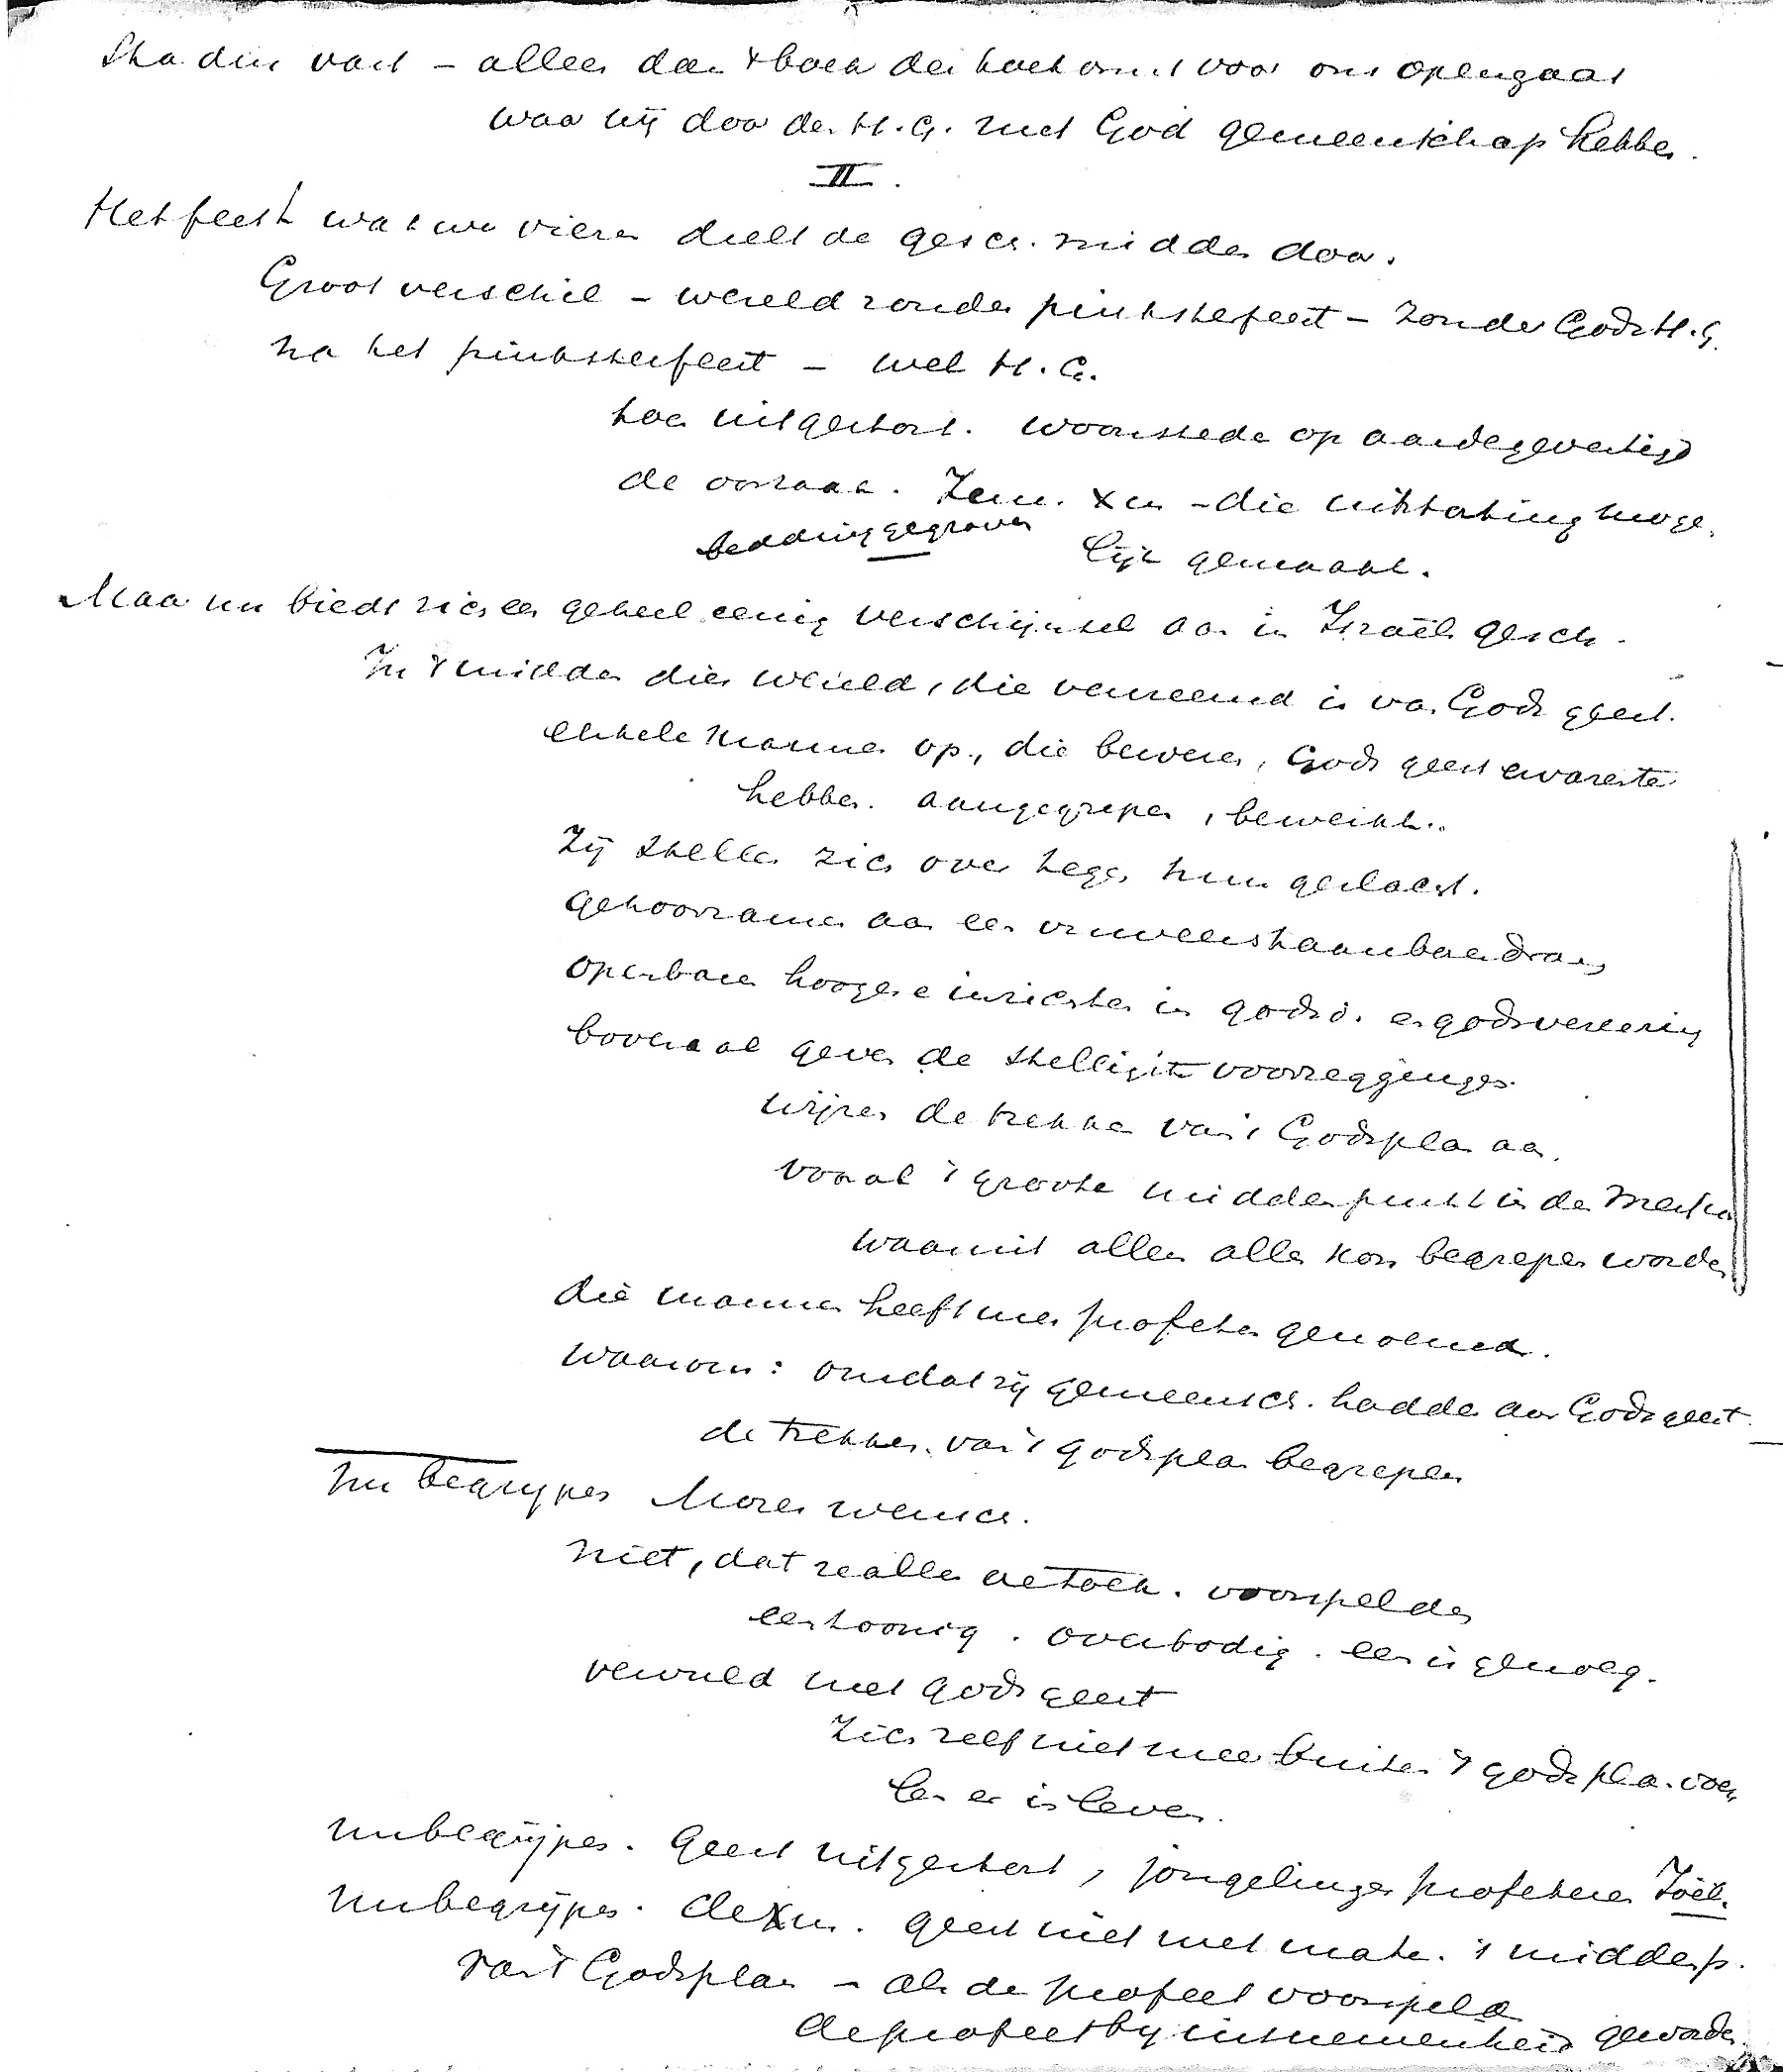 Sta dus vast – alleen dan 't boek der toekomst voor ons opengaat
waar wij door den H.G. met God gemeenschap hebben.
II.
Het feest wat we vieren deelt de gesch. midden door.
Groot verschil – wereld zonder pinksterfeest – zonder Gods H.G.
na het pinksterfeest – wel H.G.
hoe uitgestort. woonstede op aarde gevestigd
de oorzaak. Jezus Xus – die uitstorting moge.
bedding gegraven lijk gemaakt.
Maar nu biedt zich een geheel eenig verschijnsel aan in Israëls gesch.
In 't midden dier wereld, die vervreemd is van Gods geest.
enkele mannen op, die beweren, Gods geest
hebben. aangegrepen, bewerkt..
Zij stellen zich over tegen hun geslacht.
gehoorzamen aan een onweerstaanbaren drang
openbaren hoogere inzichten in godsd. en godsvereering
bovenal geven de stelligste voorzeggingen.
wijzen de trekken van 't Godsplan aan.
vooral 't groote middenpunt in den Messias
waaruit alleen alles kon begrepen worden
die mannen heeft men profeten genoemd.
Waarom: omdat zij gemeensch. hadden aan Gods geest.
de trekken van 't godsplan begrepen
Nu begrijpen Mozes wensch.
niet, dat ze allen de toek. voorspelden
eentoonig. overbodig. een is genoeg.
vervuld met gods geest
Zich zelf niet meer buiten 't gods plan voe
len er in leven.
nu begrijpen. Geest uitgestort, jongelingen profeteren Joël.
nu begrijpen. de Xus. geest niet met mate. 't middenp.
van 't Godsplan – als de profeet voorspeld
de profeet bij uitnemendheid geworden.